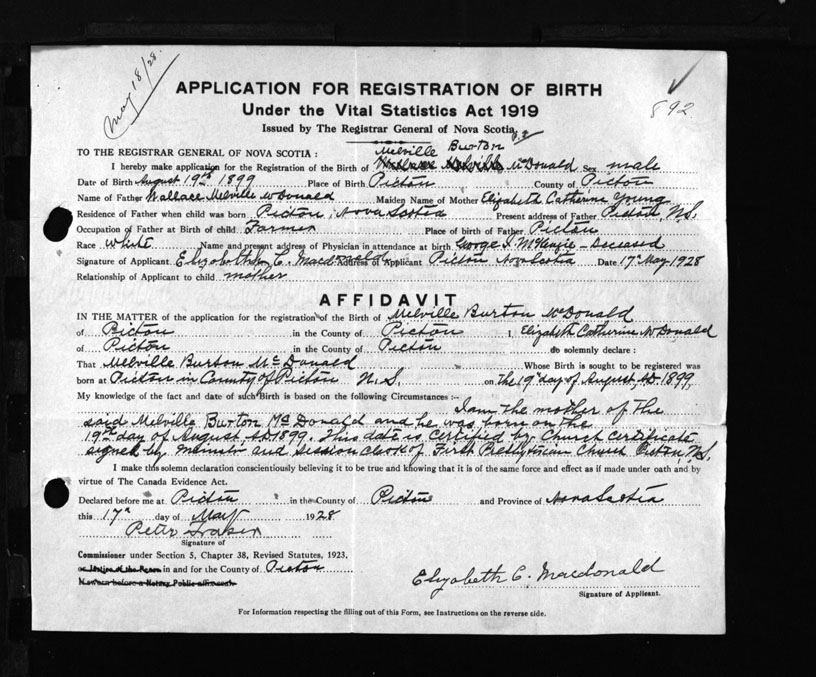 May 18/28.
892
APPLICATION FOR REGISTRATION OF BIRTH
Under the Vital Statistics Act 1919
Issued by The Registrar General of Nova Scotia
Melville Burton
TO THE REGISTRAR GENERAL OF NOVA SCOTIA :
I hereby make application for the Registration of the Birth of McDonald Sex male
Date of Birth August 19th 1899 Place of Birth Pictou County of Pictou
Name of Father Wallace Melville McDonald Maiden Name of Mother Elizabeth Catherine Young
Residence of Father when child was born Pictou, Nova Scotia Present address of Father Pictou N.S.
Occupation of Father at Birth of child Farmer Place of birth of Father Pictou
Race White Name and present address of Physician in attendance at birth George I. McKenzie – Deceased
Signature of Applicant Elizabeth C. Macdonald Address of Applicant Pictou Nova Scotia Date 17th May 1928
Relationship of Applicant to child mother
AFFIDAVIT
IN THE MATTER of the application for the registration of the Birth of Melville Burton McDonald
of Pictou in the County of Pictou I, Elizabeth Catherine McDonald
of Pictou in the County of Pictou do solemnly declare :
That Melville Burton McDonald Whose Birth is sought to be registered was
born at Pictou in County of Pictou N.S. on the 19th day of August, A.D. 1899
My knowledge of the fact and date of such Birth is based on the following Circumstances :–
I am the mother of the
said Melville Burton McDonald and he was born on the
19th day of August A.D. 1899. This date is certified by Church certificate
signed by Minister and session clerk of First Presbyterian Church Pictou, N.S.
I make this solemn declaration conscientiously believing it to be true and knowing that it is of the same force and effect as if made under oath and by
virtue of The Canada Evidence Act.
Declared before me at Pictou in the County of Pictou and Province of Nova Scotia
this 17th day of May 1928
Peter Fraser
Signature of
Commissioner under Section 5, Chapter 38, Revised Statutes, 1923,
in and for the County of Pictou
Elizabeth C. Macdonald
Signature of Applicant.
For Information respecting the filling out of this Form, see Instructions on the reverse side.